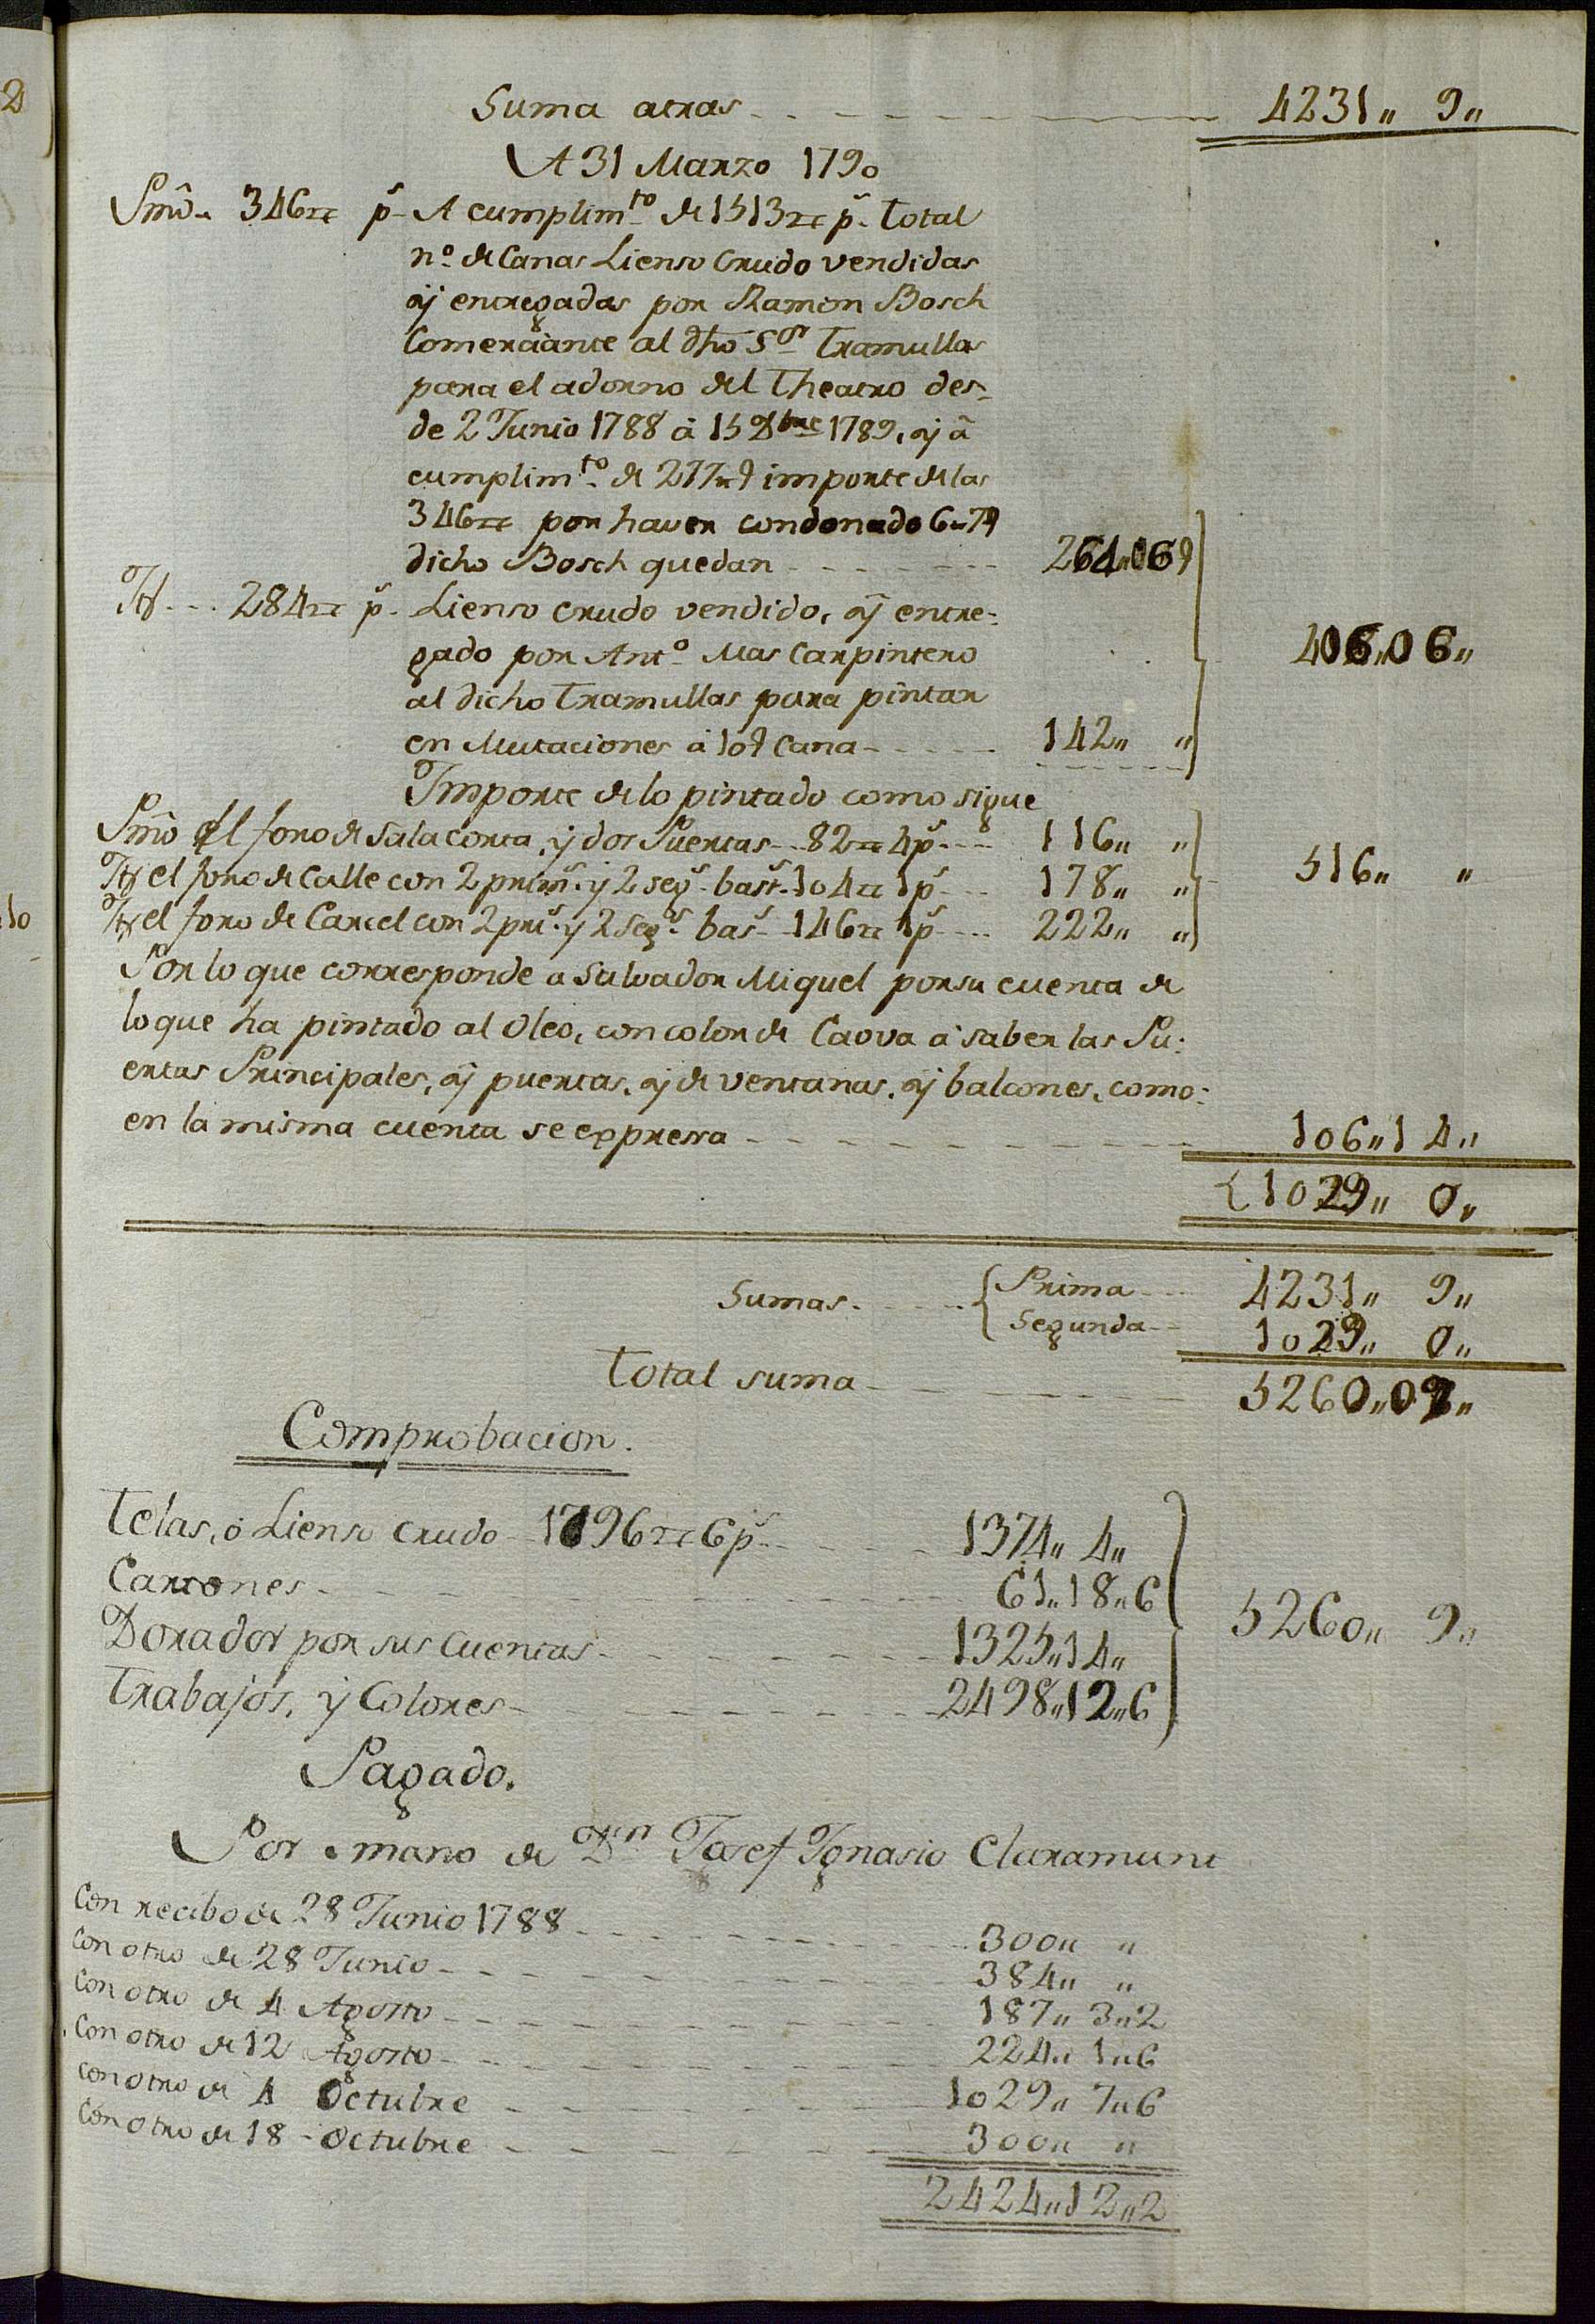 Suma atras - - - 4231„ 9„
A 31 Marzo 1790
Pmô. 346 cs p.s A cumplim.to de 1513 cs p.s total
n.o de Canas Lienso Crudo vendidas
ÿ entregadas por Ramon Bosch
Comerciante al dho S.or Tramullas
para el adorno del Theatro des-
de 2 Junio 1788 â 15 Dbre 1789, ÿ â
cumplim.to de importe de las
346 cs por haver condonado
dicho Bosch quedan - - - 264„06
It. - - - 284 cs p.s Lienso crudo vendido, ÿ entre-
gado por Ant.o Mas Carpintero
al dicho Tramullas para pintar
en Mutaciones â 10 Cana - - - 142„ „
406„06„
Importe de lo pintado como sigue
Pmô el foro de Sala corta, ÿ dos Puertas - - 82 cs 4 p.s - - 116„ „
It. el foro de Calle con 2 prim.s ÿ 2 seg.s bast.s 104 cs 1 p.s - - 178„ „
516„ „
It. el foro de Carcel con 2 pri.s ÿ 2 seg.s bas.s - 146 cs 1 p.s - - 222„ „
Por lo que corresponde a Salvador Miquel por su cuenta de
lo que ha pintado al Oleo, con color de Caova â saber las Pu-
ertas Principales, ÿ puertas, ÿ de ventanas, ÿ balcones, como
en la misma cuenta se expressa - - - 106„14„
1029„ 0„
Sumas. - - - { Prima - - 4231„ 9„
Segunda - - 1029„ 0„
Total suma - - - 5260„09„
Comprobacion.
Telas, ô Lienso Crudo - 1796 cs 6 p.s - - - 1374„ 4„
Cartones - - - 61„18„6
Dorador por sus Cuentas - - - 1325„14„
5260„ 9„
Trabajos, ÿ Colores - - - 2498„12„6
Pagado.
Por mano de D.n Josef Ignasio Claramunt
Con recibo de 28 Junio 1788 - - - 300„ „
Con otro de 28 Junio - - - 384„ „
Con otro de 4 Agosto - - - 187„ 3„2
Con otro de 12 Agosto - - - 224„ 1„6
Con otro de 4 Octubre - - - 1029„ 7„6
Con otro de 18 - Octubre - - - 300„ „
2424„12„2